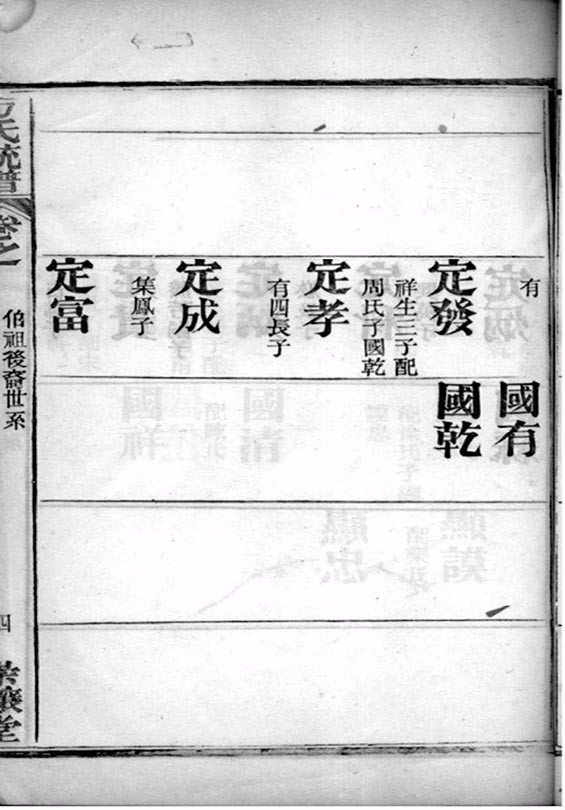 有
國有
定發
祥生三子配
周氏子國乾
國乾
定孝
有四長子
定成
集鳳子
定富
氏統譜
卷之
伯祖後裔世系
四
堂